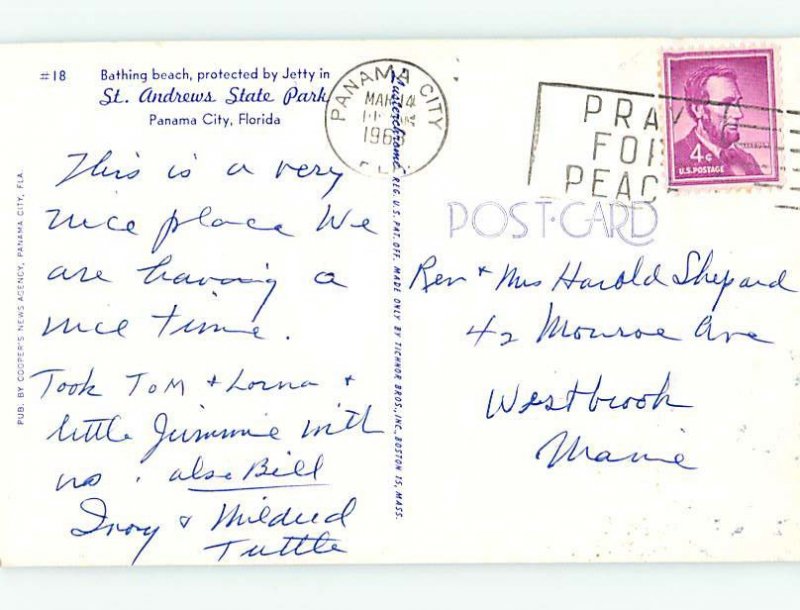 #18 Bathing beach, protected by Jetty in
St. Andrews State Park
Panama City, Florida
This is a very
nice place We
are having a
nice time.
Took Tom + Lorna +
little Jimmie with
us. also Bill
Ivory + Mildred
Tuttle
PUB. BY COOPER'S NEWS AGENCY, PANAMA CITY, FLA.
Lusterchrome REG. U.S. PAT. OFF. MADE ONLY BY TICHNOR BROS., INC., BOSTON 15, MASS.
PANAMA CITY
MAR 14
AM
FLA
PRAY
FOR
PEACE
4¢
U.S. POSTAGE
POST CARD
Rev + Mrs Harold Shepard
42 Monroe Ave
Westbrook
Maine